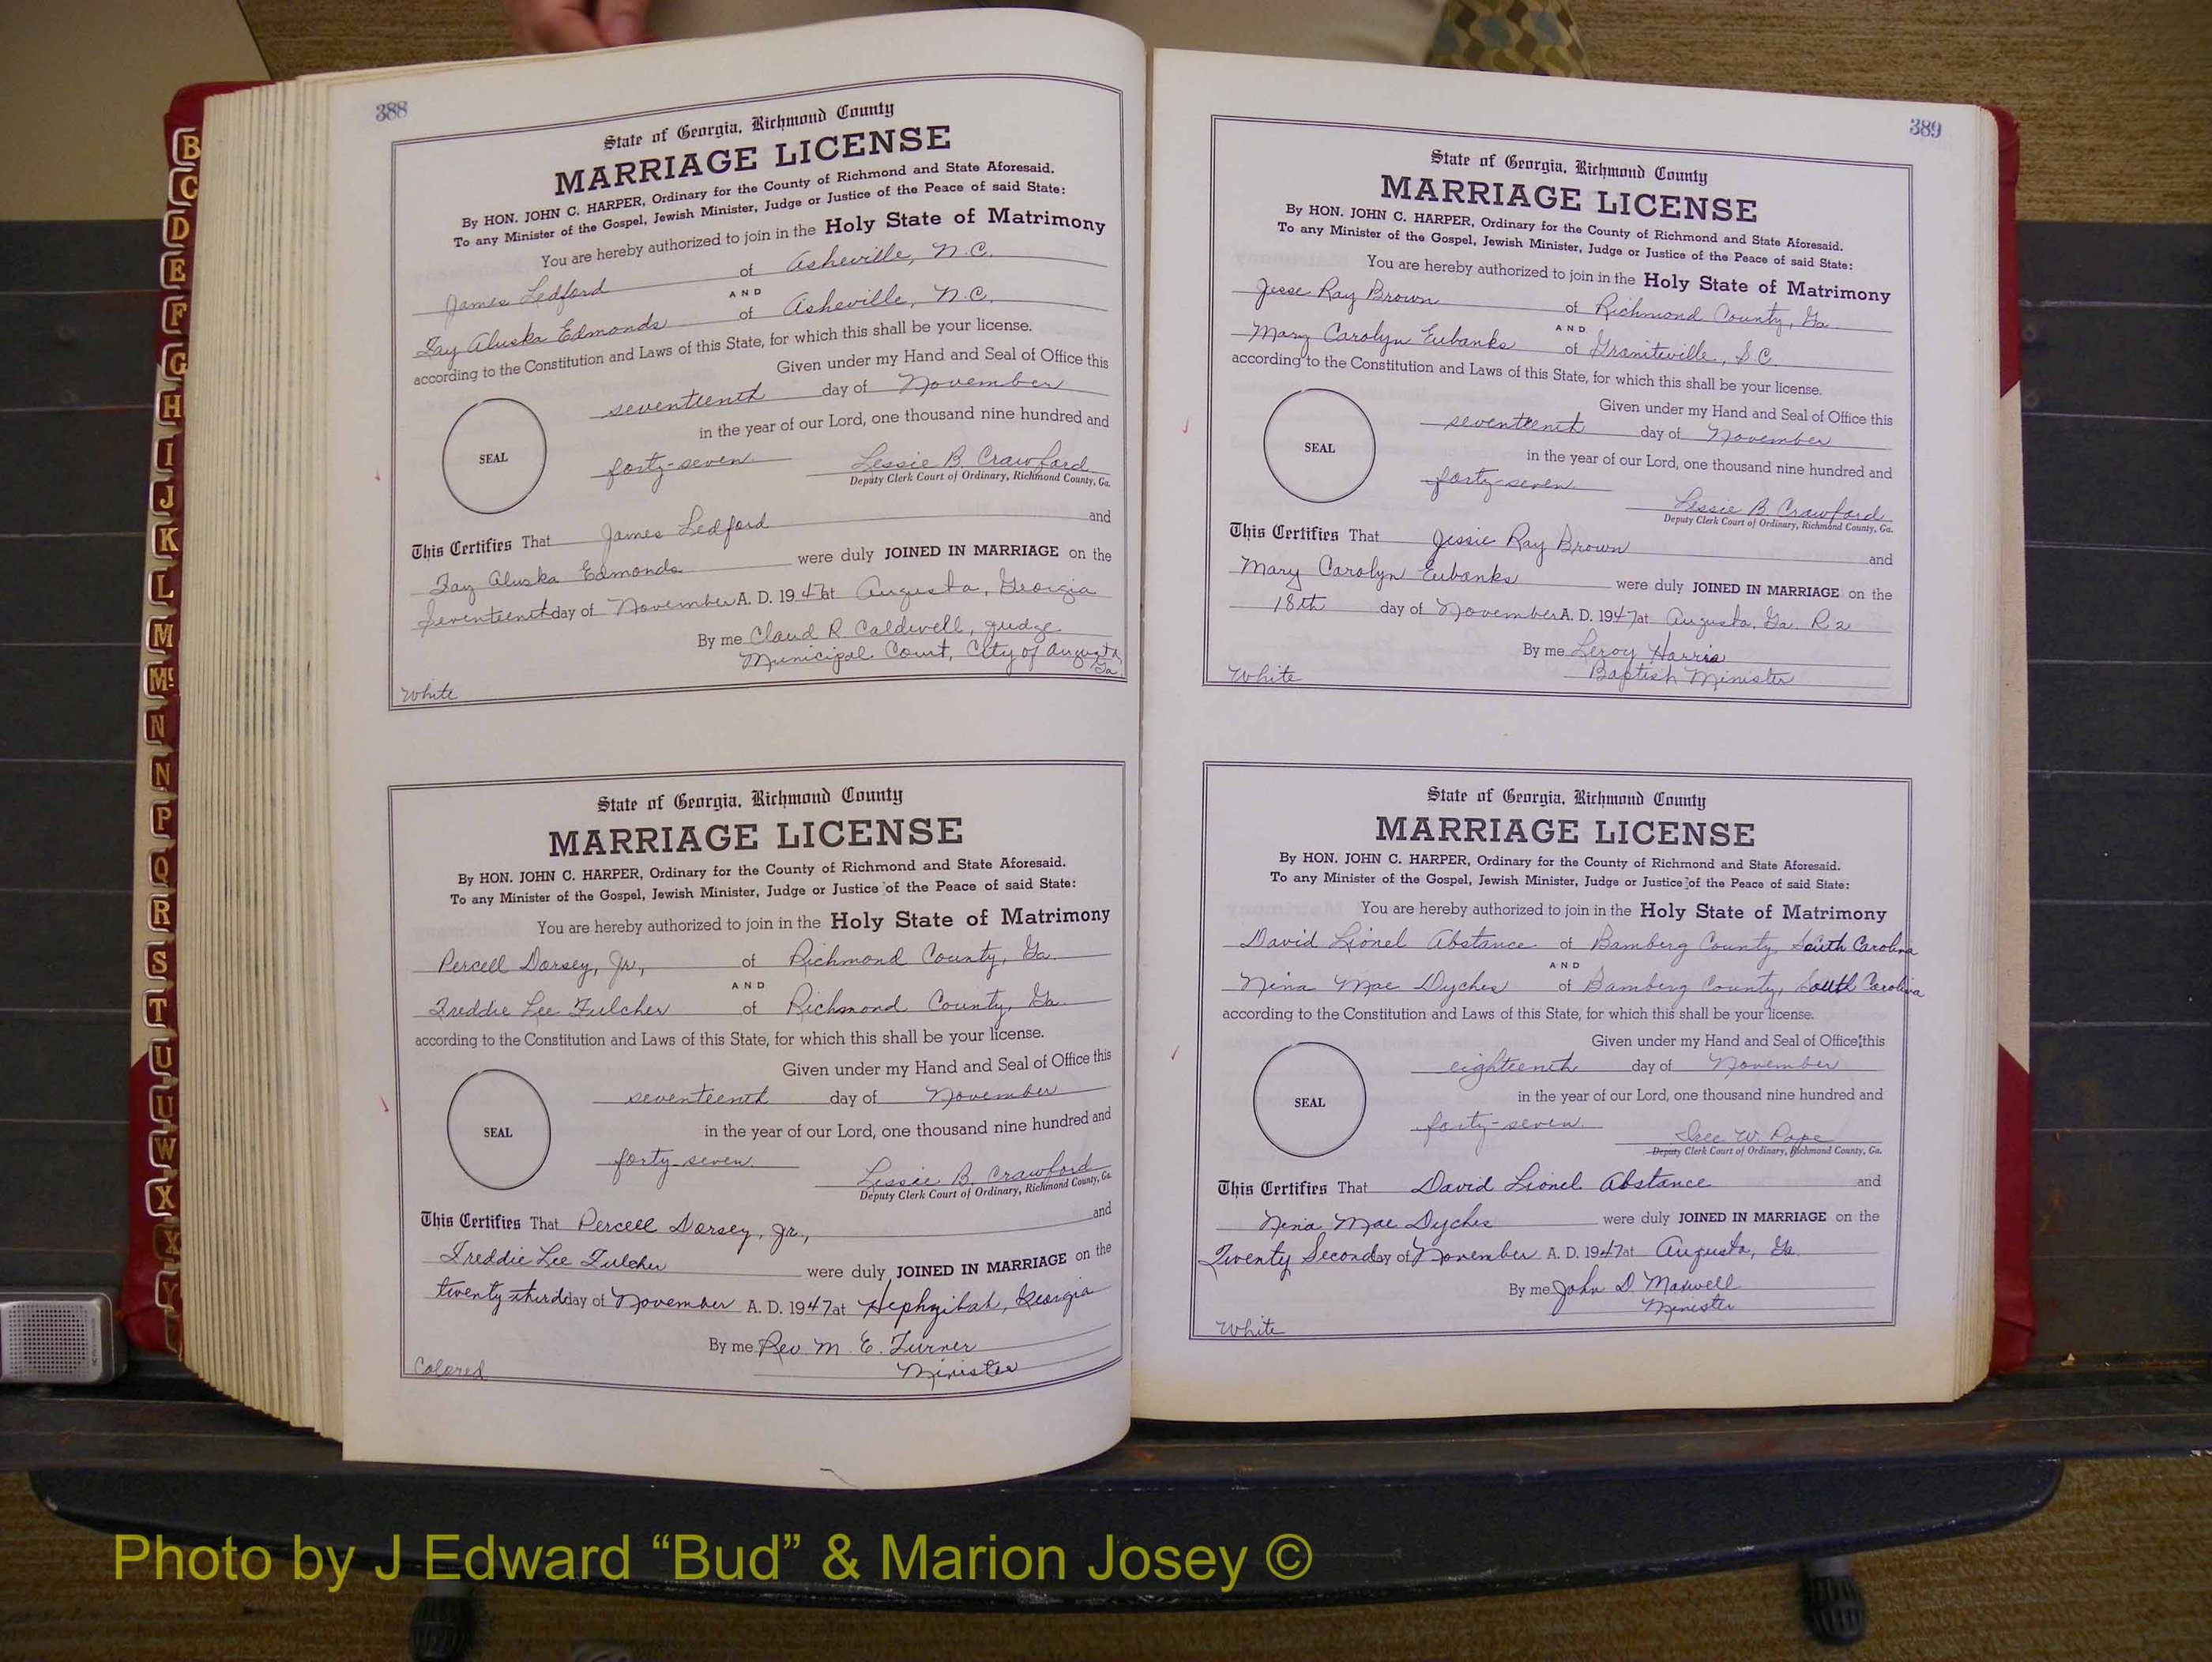 B
C
D
E
F
G
H
I
J
K
L
M
Mc
N
N
P
Q
R
S
T
U
U
W
X
X
Y
388
State of Georgia, Richmond County
MARRIAGE LICENSE
By HON. JOHN C. HARPER, Ordinary for the County of Richmond and State Aforesaid.
To any Minister of the Gospel, Jewish Minister, Judge or Justice of the Peace of said State:
You are hereby authorized to join in the Holy State of Matrimony
James Ledford of Asheville, N.C.
AND
Fay Aluska Edmonds of Asheville, N.C.
according to the Constitution and Laws of this State, for which this shall be your license.
Given under my Hand and Seal of Office this
seventeenth day of November
in the year of our Lord, one thousand nine hundred and
SEAL
forty-seven. Lessie B. Crawford
Deputy Clerk Court of Ordinary, Richmond County, Ga.
This Certifies That James Ledford and
Fay Aluska Edmonds were duly JOINED IN MARRIAGE on the
Seventeenth day of November A. D. 1947 at Augusta, Georgia
By me Claud R. Caldwell, Judge
Municipal Court, City of Augusta,
Ga.
White
State of Georgia, Richmond County
MARRIAGE LICENSE
By HON. JOHN C. HARPER, Ordinary for the County of Richmond and State Aforesaid.
To any Minister of the Gospel, Jewish Minister, Judge or Justice of the Peace of said State:
You are hereby authorized to join in the Holy State of Matrimony
Percell Dorsey, Jr., of Richmond County, Ga.
AND
Freddie Lee Fulcher of Richmond County, Ga.
according to the Constitution and Laws of this State, for which this shall be your license.
Given under my Hand and Seal of Office this
seventeenth day of November
in the year of our Lord, one thousand nine hundred and
SEAL
forty-seven. Lessie B. Crawford
Deputy Clerk Court of Ordinary, Richmond County, Ga.
This Certifies That Percell Dorsey, Jr., and
Freddie Lee Fulcher were duly JOINED IN MARRIAGE on the
twenty-third day of November A. D. 1947 at Hephzibah, Georgia
By me Rev M. E. Turner
Minister
Colored
389
State of Georgia, Richmond County
MARRIAGE LICENSE
By HON. JOHN C. HARPER, Ordinary for the County of Richmond and State Aforesaid.
To any Minister of the Gospel, Jewish Minister, Judge or Justice of the Peace of said State:
You are hereby authorized to join in the Holy State of Matrimony
Jesse Ray Brown of Richmond County, Ga.
AND
Mary Carolyn Eubanks of Graniteville, S.C.
according to the Constitution and Laws of this State, for which this shall be your license.
Given under my Hand and Seal of Office this
seventeenth day of November
in the year of our Lord, one thousand nine hundred and
SEAL
forty-seven. Lessie B. Crawford
Deputy Clerk Court of Ordinary, Richmond County, Ga.
This Certifies That Jessie Ray Brown and
Mary Carolyn Eubanks were duly JOINED IN MARRIAGE on the
18th day of November A. D. 1947 at Augusta, Ga. R 2
By me Leroy Harris
Baptist Minister
White
State of Georgia, Richmond County
MARRIAGE LICENSE
By HON. JOHN C. HARPER, Ordinary for the County of Richmond and State Aforesaid.
To any Minister of the Gospel, Jewish Minister, Judge or Justice of the Peace of said State:
You are hereby authorized to join in the Holy State of Matrimony
David Lionel Abstance of Bamberg County, South Carolina
AND
Nina Mae Dyches of Bamberg County, South Carolina
according to the Constitution and Laws of this State, for which this shall be your license.
Given under my Hand and Seal of Office this
eighteenth day of November
in the year of our Lord, one thousand nine hundred and
SEAL
forty-seven. W. Pope
Deputy Clerk Court of Ordinary, Richmond County, Ga.
This Certifies That David Lionel Abstance and
Nina Mae Dyches were duly JOINED IN MARRIAGE on the
Twenty Second day of November A. D. 1947 at Augusta, Ga.
By me John D Maxwell
Minister
White
Photo by J Edward “Bud” & Marion Josey ©